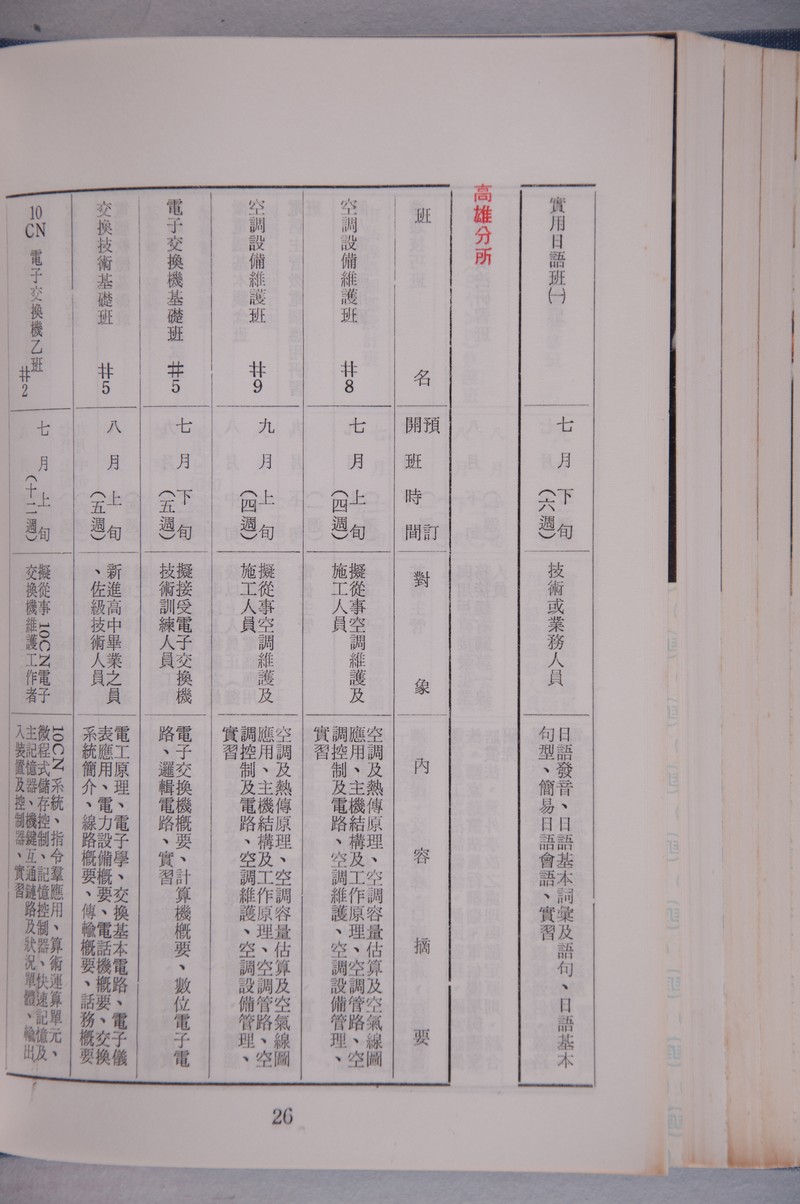 實用日語班㈠
七月下旬
（六週）
技術或業務人員
日語發音、日語基本詞彙及語句、日語基本
句型、簡易日語會話、實習
高雄分所
班名
預訂
開班時間
對象
內容摘要
空調設備維護班 #8
七月上旬
（四週）
擬從事空調維護及
施工人員
空調及熱傳原理、空調容量估算及空氣線圖
應用、主機結構及工作原理、空調管路、空
調控制及電路、空調維護、空調設備管理、
實習
空調設備維護班 #9
九月上旬
（四週）
擬從事空調維護及
施工人員
空調及熱傳原理、空調容量估算及空氣線圖
應用、主機結構及工作原理、空調管路、空
調控制及電路、空調維護、空調設備管理、
實習
電子交換機基礎班 #5
七月下旬
（五週）
擬接受電子交換機
技術訓練人員
電子交換機概要、計算機概要、數位電子電
路、邏輯電路、實習
交換技術基礎班 #5
八月上旬
（五週）
新進高中畢業之員
、佐級技術人員
電工原理、電子學、交換基本電路、電子儀
表應用、電力設備概要、電話機概要、交換
系統簡介、線路概要、傳輸概要、話務概要
10CN 電子交換機乙班 #2
七月上旬
（十二週）
擬從事 10CN 電子
交換機維護工作者
10CN 系統、指令羣應用、算術運算單元、
微程式儲存控制、記憶控制器、快速記憶及
主記憶器、機鍵互通鏈路及狀況單體、輸出
入裝置及控制器、實習
26